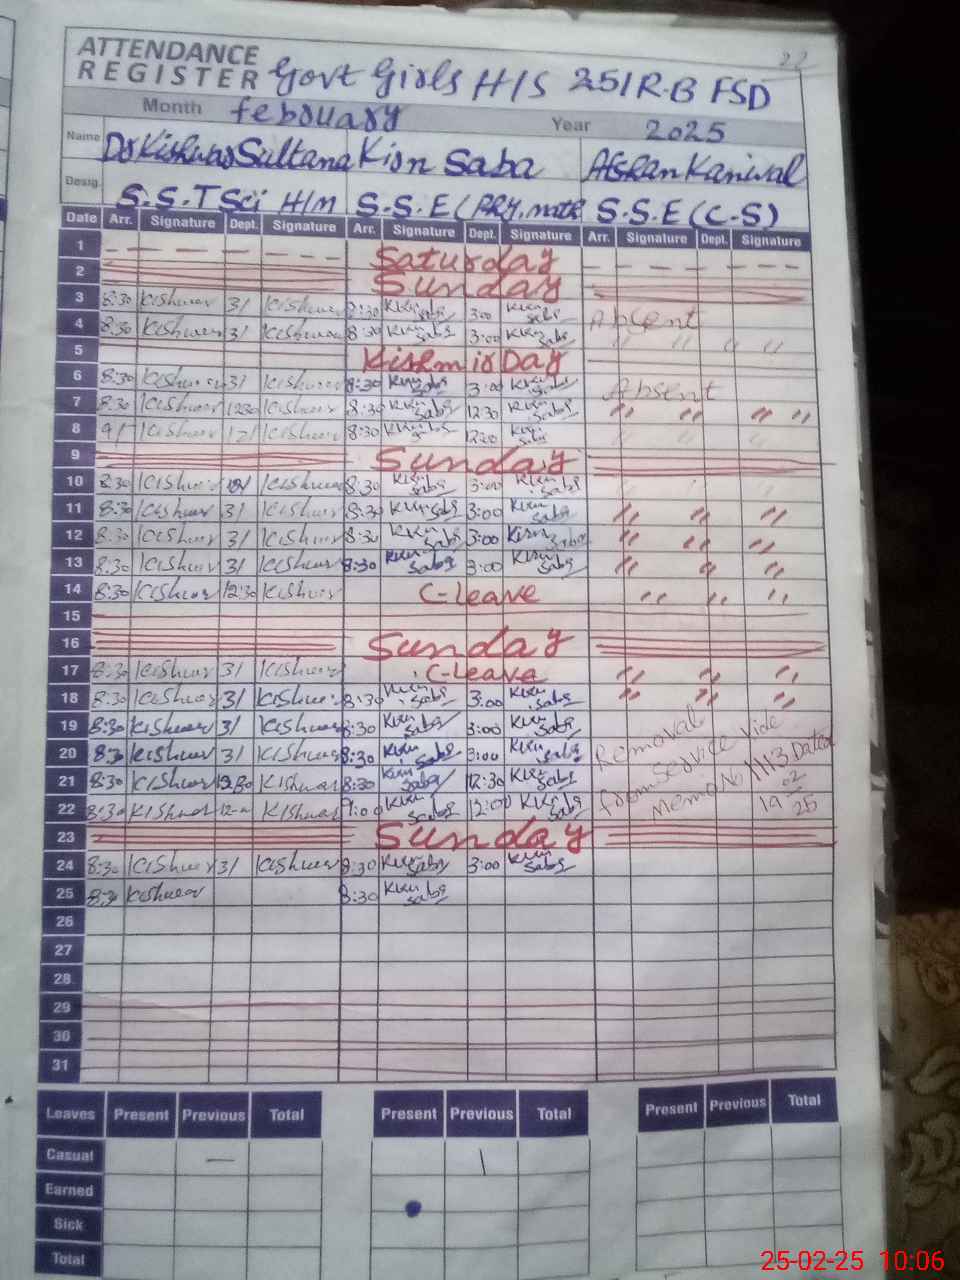 22
ATTENDANCE
REGISTER Govt Girls H/S 251R.B FSD
Month february Year 2025
Name Dr Kishwar Sultana Kirn Saba Afshan Kanwal
Desig. S.S.T Sci H/M S.S.E (PHY. math S.S.E (C-S)
Date Arr. Signature Dept. Signature Arr. Signature Dept. Signature Arr. Signature Dept. Signature
1 — — — — — — Saturday — — — — — —
2 Sunday
3 8:30 Kishwar 3/ Kishwar 8:30 Kirn Saba 3:00 Kirn Saba Absent
4 8:30 Kishwar 3/ Kishwar 8:30 Kirn Saba 3:00 Kirn Saba " " " "
5 Kishmir Day
6 8:30 Kishwar 3/ Kishwar 8:30 Kirn Saba 3:00 Kirn Saba Absent
7 8:30 Kishwar 1230 Kishwar 8:30 Kirn Saba 12:30 Kirn Saba " " " "
8 9/ Kishwar 12/ Kishwar 8:30 Kirn Saba 12:00 Kirn Saba " " "
9 Sunday
10 8:30 Kishwar Kishwar 8:30 Kirn Saba 3:00 Kirn Saba
11 8:30 Kishwar 3/ Kishwar 8:30 Kirn Saba 3:00 Kirn Saba " " "
12 8:30 Kishwar 3/ Kishwar 8:30 Kirn Saba 3:00 Kirn Saba " " "
13 8:30 Kishwar 3/ Kishwar 8:30 Kirn Saba 3:00 Kirn Saba " " "
14 8:30 Kishwar 12:30 Kishwar C-Leave " " "
15
16 Sunday
17 8:30 Kishwar 3/ Kishwar C-Leave " " "
18 8:30 Kishwar 3/ Kishwar 8:30 Kirn Saba 3:00 Kirn Saba " " "
19 8:30 Kishwar 3/ Kishwar 8:30 Kirn Saba 3:00 Kirn Saba Removal
20 8:30 Kishwar 3/ Kishwar 8:30 Kirn Saba 3:00 Kirn Saba from service vide
21 8:30 Kishwar 12:30 Kishwar 8:30 Kirn Saba 12:30 Kirn Saba memo No 1113 Dated
22 8:30 Kishwar Kishwar 9:00 Kirn Saba 12:00 Kirn Saba 19/02/25
23 Sunday
24 8:30 Kishwar 3/ Kishwar 8:30 Kirn Saba 3:00 Kirn Saba
25 8:30 Kishwar 8:30 Kirn Saba
26
27
28
29
30
31
Leaves Present Previous Total Present Previous Total Present Previous Total
Casual — 1
Earned
Sick
Total
25-02-25 10:06